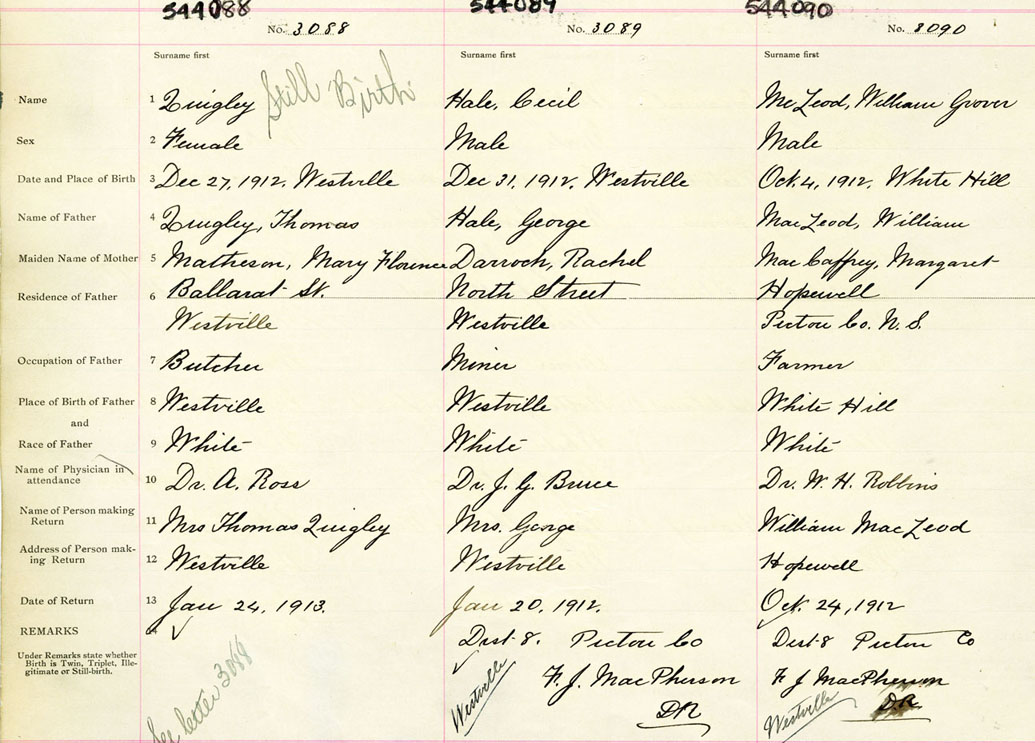 544088 544089 544090
No. 3088 No. 3089 No. 3090
Surname first Surname first Surname first
Name 1 Quigley Still Birth Hale, Cecil McLeod, William Grover
Sex 2 Female Male Male
Date and Place of Birth 3 Dec 27, 1912. Westville Dec 31, 1912. Westville Oct. 4, 1912. White Hill
Name of Father 4 Quigley, Thomas Hale, George MacLeod, William
Maiden Name of Mother 5 Matheson, Mary Florence Darroch, Rachel MacCaffrey, Margaret
Residence of Father 6 Ballarat St. North Street Hopewell
Westville Westville Pictou Co. N.S.
Occupation of Father 7 Butcher Miner Farmer
Place of Birth of Father 8 Westville Westville White Hill
and
Race of Father 9 White White White
Name of Physician in
attendance 10 Dr. A. Ross Dr. J. G. Bruce Dr. W. H. Robbins
Name of Person making
Return 11 Mrs Thomas Quigley Mrs. George William MacLeod
Address of Person mak-
ing Return 12 Westville Westville Hopewell
Date of Return 13 Jan 24, 1913. Jan 20, 1912. Oct. 24, 1912
REMARKS 14 Dist 8. Pictou Co Dist 8 Pictou Co
Under Remarks state whether
Birth is Twin, Triplet, Ille-
gitimate or Still-birth.
See letter 3088
Westville F. J. MacPherson F J MacPherson
DR Westville D.R